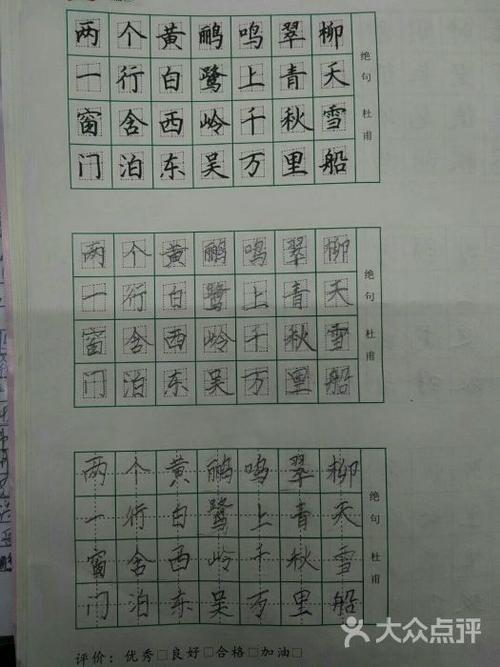 两个黄鹂鸣翠柳
一行白鹭上青天
窗含西岭千秋雪
门泊东吴万里船
绝句 杜甫
两个黄鹂鸣翠柳
一行白鹭上青天
窗含西岭千秋雪
门泊东吴万里船
绝句 杜甫
两个黄鹂鸣翠柳
一行白鹭上青天
窗含西岭千秋雪
门泊东吴万里船
绝句 杜甫
评价：优秀□良好□合格□加油□
大众点评